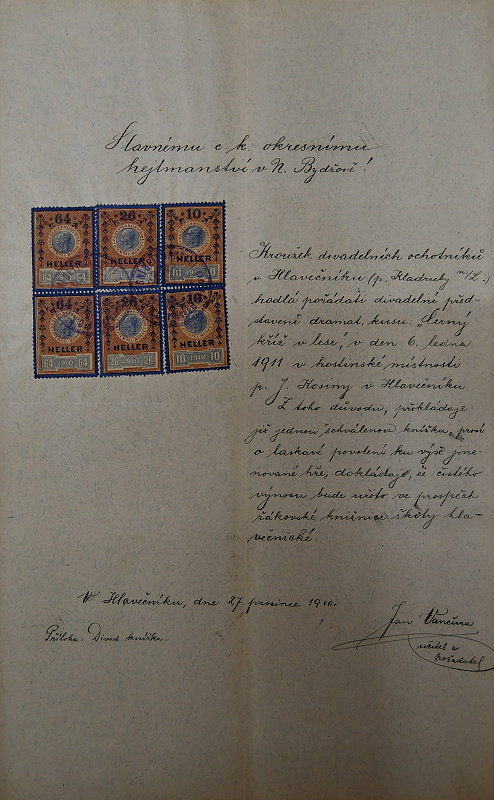 Slavnému c. k. okresnímu
hejtmanství v N. Bydžově!
64 26 10
HELLER HELLER HELLER
64 1910 64 26 1910 26 10 1910 10
64 26 10
HELLER HELLER HELLER
64 1910 64 26 1910 26 10 1910 10
Kroužek divadelních ochotníků
v Hlavečníku (p. Kladruby n/L.)
hodlá pořádati divadelní před-
stavení dramat. kusu: „Černý
kříž v lese„ v den 6. ledna
1911 v hostinské místnosti
p. J. Kosiny v Hlavečníku.
Z toho důvodu, přikládaje
již jednou schválenou knížku, prosí
o laskavé povolení ku výše jme-
nované hře, dokládaje, že čistého
výnosu bude užito ve prospěch
žákovské knižnice školy hla-
večnické.
V Hlavečníku, dne 27 prosince 1910.
Příloha: Divad. knížka.
Jan Vančura
učitel a
pořadatel